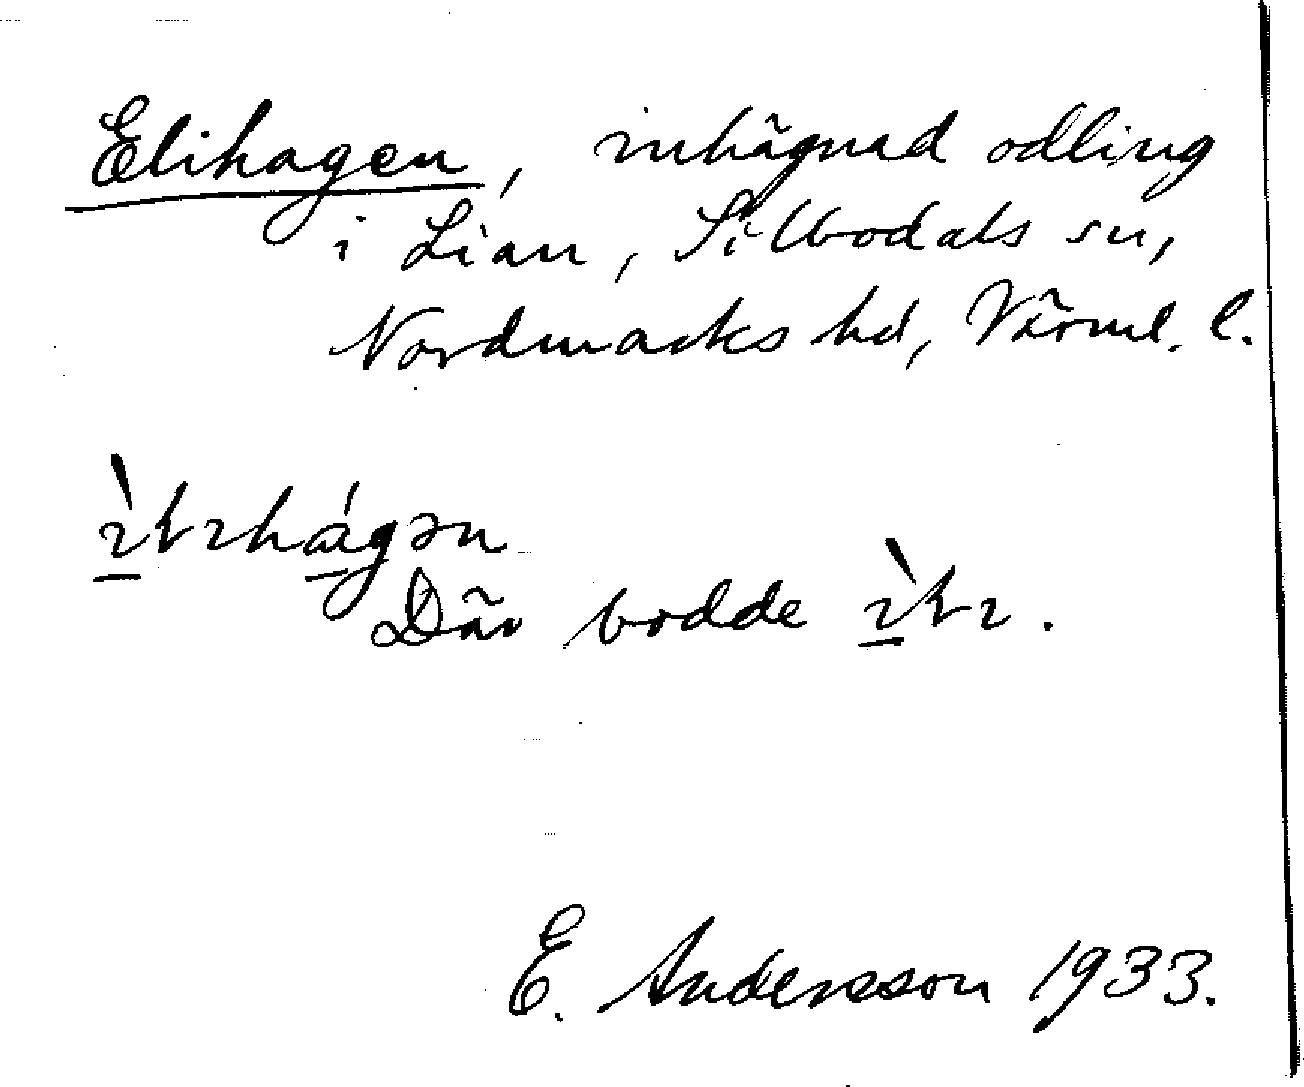 Elihagen, inhägnad odling
i Lian, Silbodals sn,
Nordmarks hd, Värml. l.
Där bodde
E. Andersson 1933.